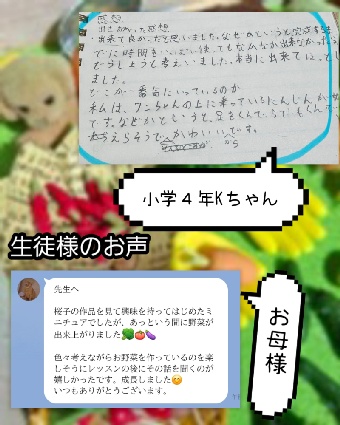 感想
出来て良かったと思いました。なぜかというと完成するま
でに時間をいっぱい使ってもなんなか出来なかったら
どうしようと考えいました。本当に出来て
ました。
どこが一番気にいっているのか
私は、ワニちゃんの上に乗っているにんじん
です。などかというと、足をくんで
かわいいです。
から
小学4年Kちゃん
生徒様のお声
先生へ
桜子の作品を見て興味を持ってはじめたミ
ニチュアでしたが、あっという間に野菜が
出来上がりました🥦🍅🍆
色々考えながらお野菜を作っているのを楽
しそうにレッスンの後にその話を聞くのが
嬉しかったです。成長しました😊
いつもありがとうございます。
お母様